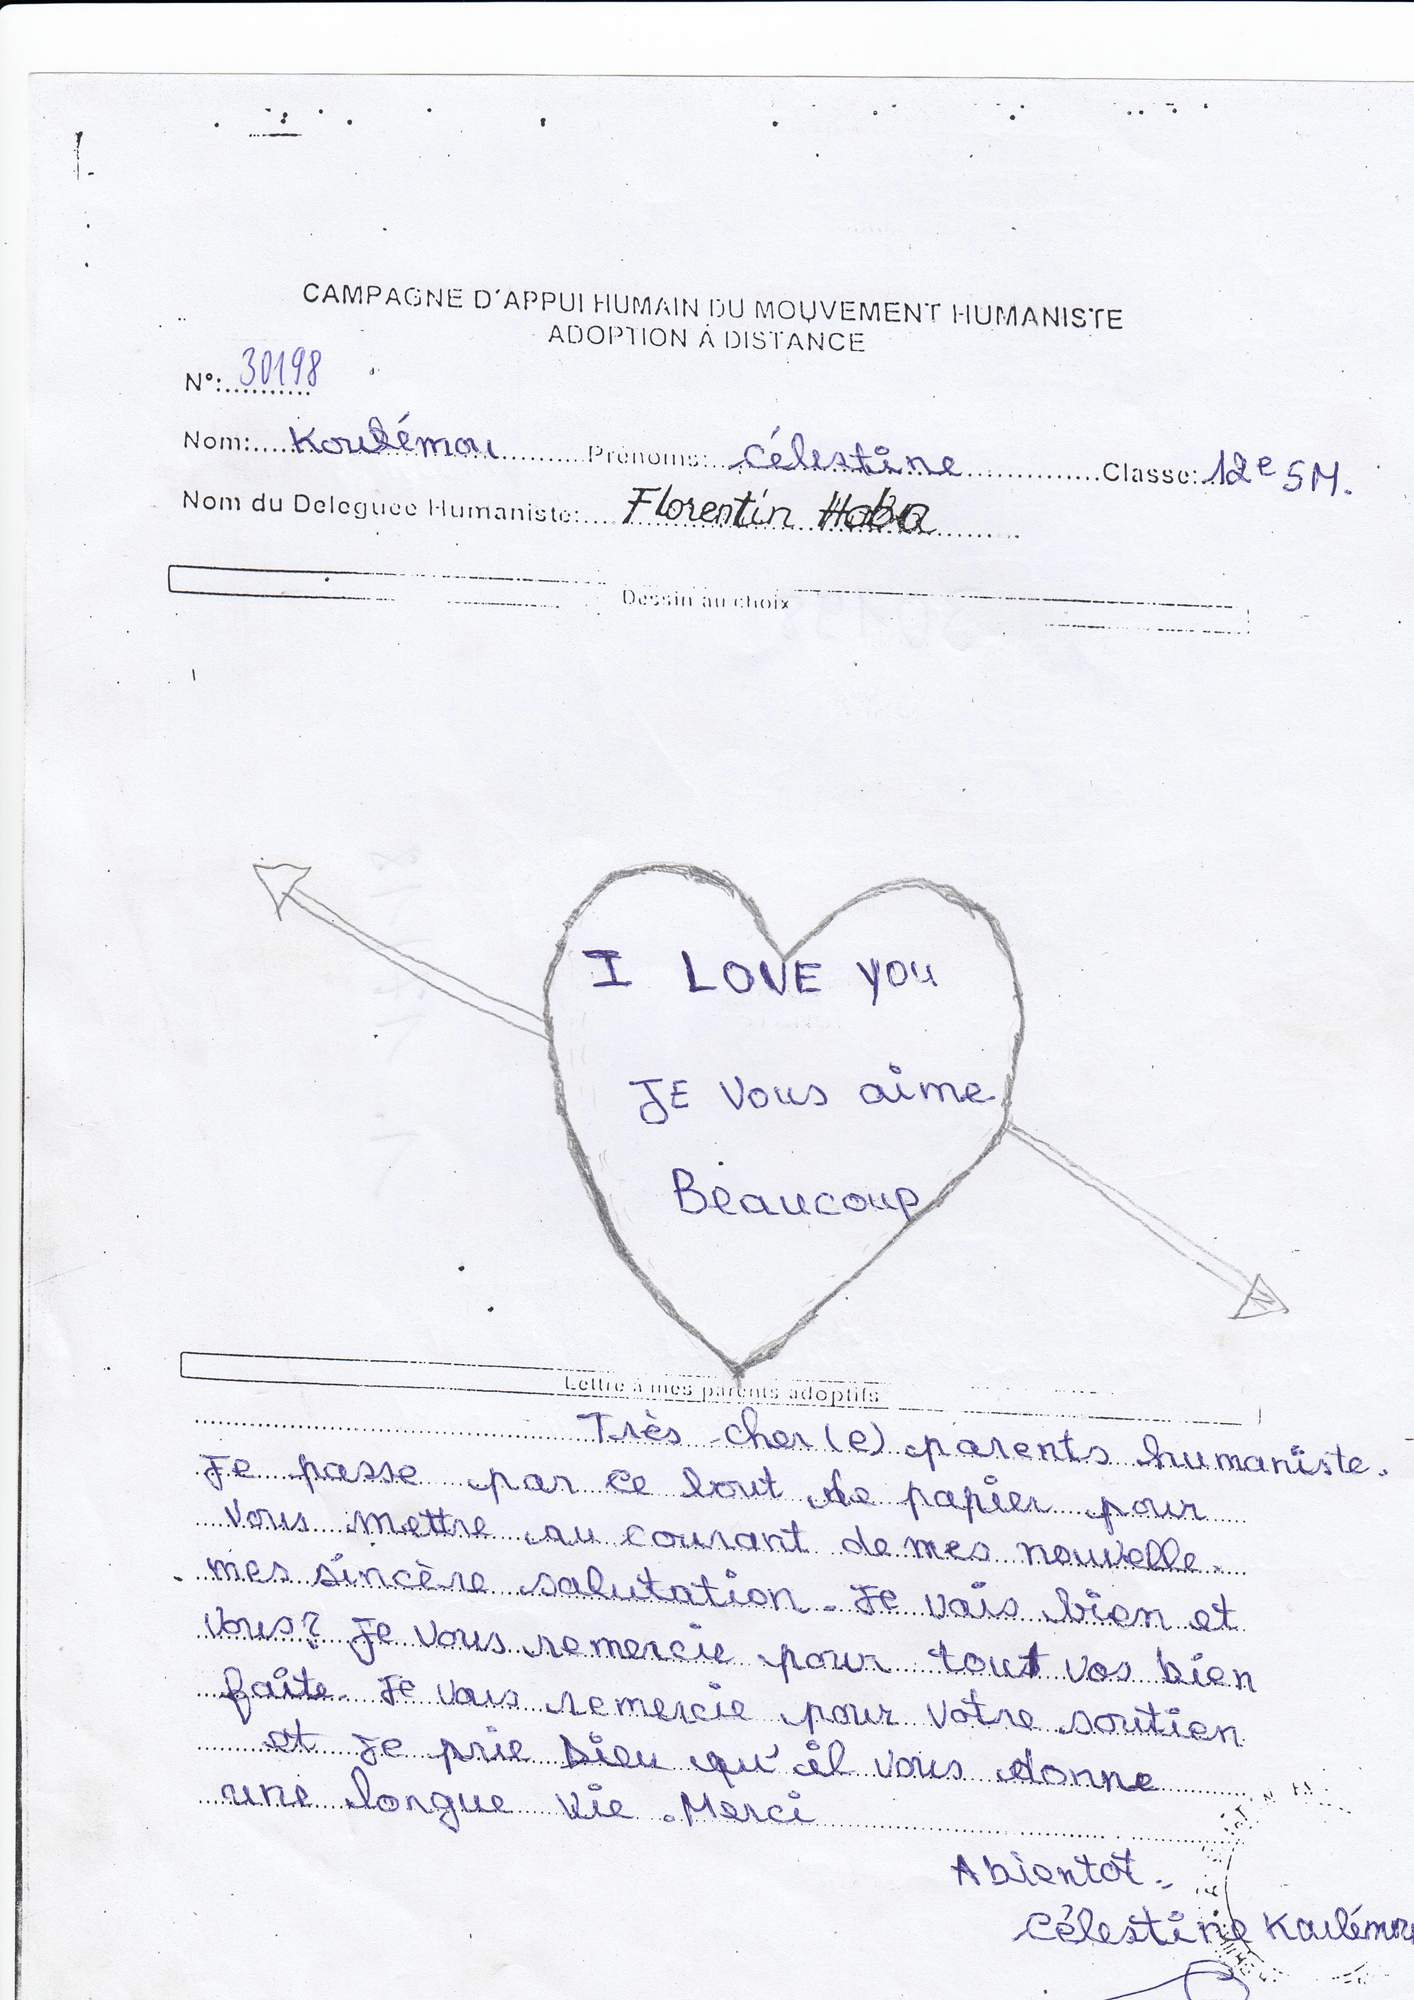 CAMPAGNE D'APPUI HUMAIN DU MOUVEMENT HUMANISTE
ADOPTION À DISTANCE
N°: 30198
Nom: Koulémou Prénoms: Célestine Classe: 12e SM.
Nom du Deleguee Humaniste: Florentin Haba
Dessin au choix
I LOVE you
JE vous aime
Beaucoup
Lettre à mes parents adoptifs
Très cher(e) parents humaniste.
Je passe par ce bout de papier pour
vous mettre au courant de mes nouvelle.
mes sincère salutation. Je vais bien et
vous? Je vous remercie pour tout vos bien
faite. Je vous remercie pour votre soutien
et je prie Dieu qu'il vous donne
une longue vie. Merci
Abientot.
Célestine Koulémou